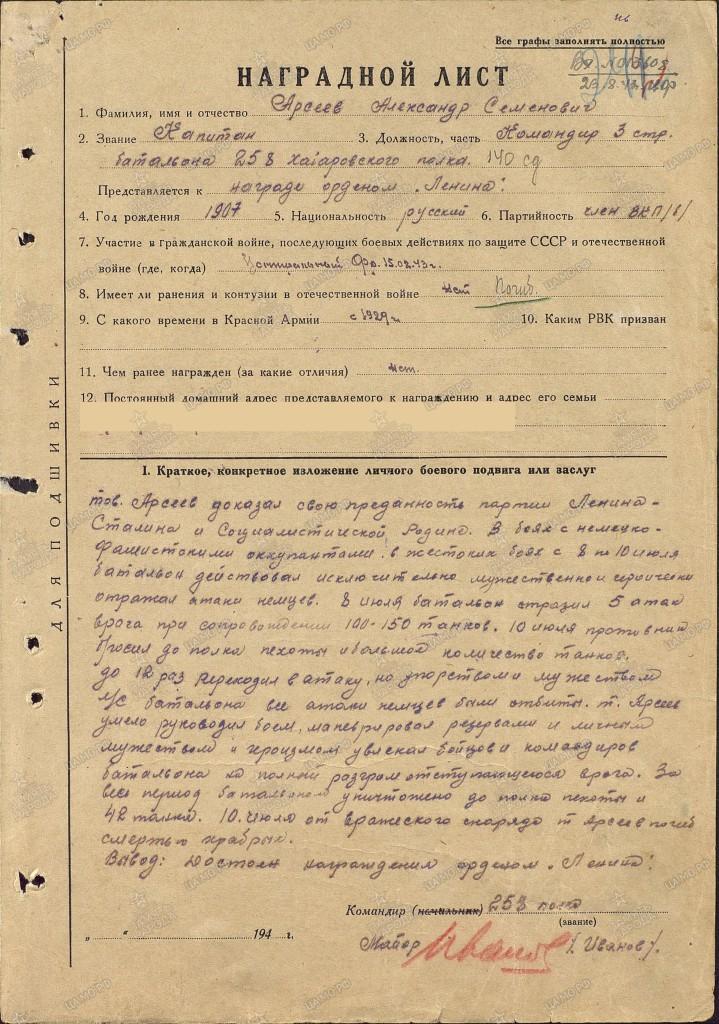 Все графы заполнять полностью
НАГРАДНОЙ ЛИСТ
1. Фамилия, имя и отчество Арсеев Александр Семенович
2. Звание Капитан 3. Должность, часть Командир 3 стр.
батальона 258 Хасаровского полка. 140 сд
Представляется к награде орденом „Ленина".
4. Год рождения 1907 5. Национальность русский 6. Партийность член ВКП/б/
7. Участие в гражданской войне, последующих боевых действиях по защите СССР и отечественной
войне (где, когда) Центральный Фр. 15.02.43г.
8. Имеет ли ранения и контузии в отечественной войне нет Погиб.
9. С какого времени в Красной Армии с 1929 г. 10. Каким РВК призван
11. Чем ранее награжден (за какие отличия) нет.
12. Постоянный домашний адрес представляемого к награждению и адрес его семьи
I. Краткое, конкретное изложение личного боевого подвига или заслуг
тов. Арсеев доказал свою преданность партии Ленина-
Сталина и Социалистической Родине. В боях с немецко-
фашистскими оккупантами. в жестоких боях с 8 по 10 июля
батальон действовал исключительно мужественно и героически
отражал атаки немцев. 8 июля батальон отразил 5 атак
врага при сопровождении 100-150 танков. 10 июля противник
бросил до полка пехоты и большое количество танков.
до 12 раз переходил в атаку, но упорством и мужеством
л/с батальона все атаки немцев были отбиты. т. Арсеев
умело руководил боем, маневрировал резервами и личным
мужеством и героизмом увлекал бойцов и командиров
батальона на полный разгром отступающегося врага. За
весь период батальоном уничтожено до полка пехоты и
42 танка. 10. июля от вражеского снаряда т Арсеев погиб
смертью храбрых.
Вывод: Достоин награждения орденом „Ленина".
Командир (начальник) 258 полка
(звание)
„ “ 194 г.
Майор Иванов /Иванов/.
ДЛЯ ПОДШИВКИ
ЦАМО.РФ